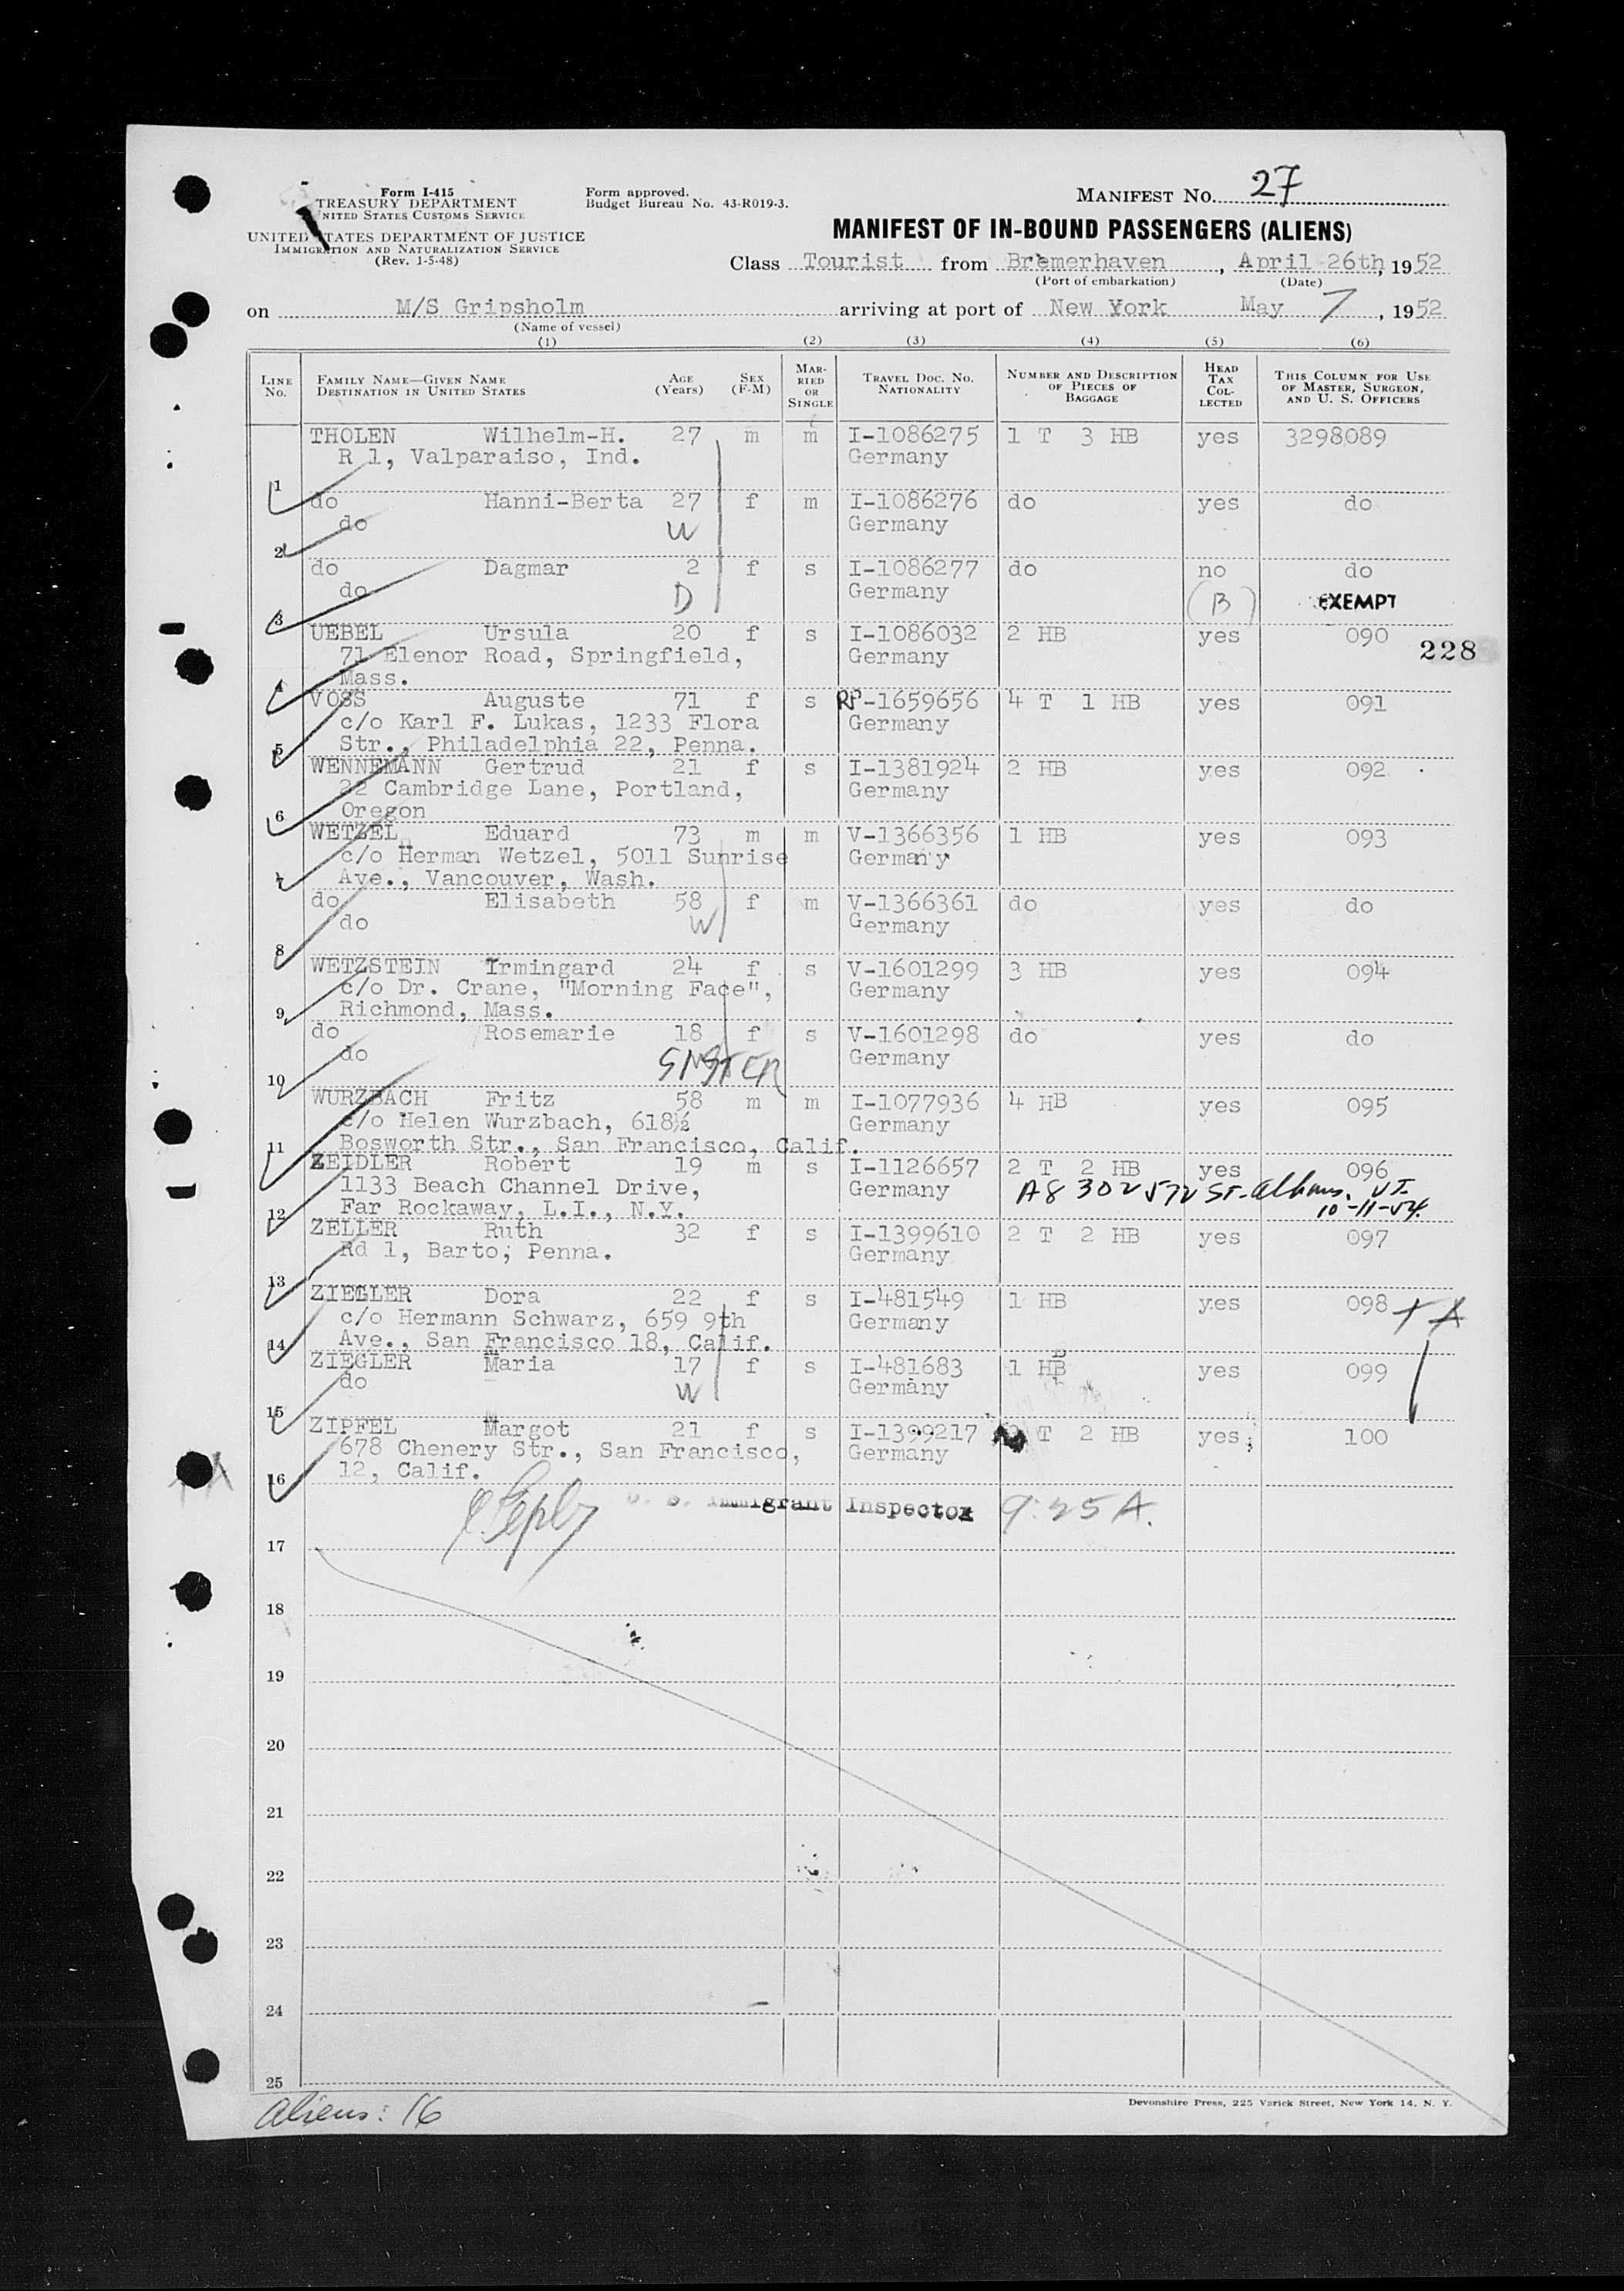 Form I-415
TREASURY DEPARTMENT
UNITED STATES CUSTOMS SERVICE
UNITED STATES DEPARTMENT OF JUSTICE
IMMIGRATION AND NATURALIZATION SERVICE
(Rev. 1-5-48)
Form approved.
Budget Bureau No. 43-R019-3.
MANIFEST No. 27
MANIFEST OF IN-BOUND PASSENGERS (ALIENS)
Class Tourist from Bremerhaven, April 26th, 1952
(Port of embarkation) (Date)
on M/S Gripsholm arriving at port of New York May 7, 1952
(Name of vessel)
(1) (2) (3) (4) (5) (6)
LINE No. FAMILY NAME—GIVEN NAME DESTINATION IN UNITED STATES AGE (Years) SEX (F-M) MARRIED OR SINGLE TRAVEL DOC. NO. NATIONALITY NUMBER AND DESCRIPTION OF PIECES OF BAGGAGE HEAD TAX COLLECTED THIS COLUMN FOR USE OF MASTER, SURGEON, AND U. S. OFFICERS
THOLEN Wilhelm-H. 27 m m I-1086275 1 T 3 HB yes 3298089
R 1, Valparaiso, Ind. Germany
1
do Hanni-Berta 27 f m I-1086276 do yes do
do W Germany
2
do Dagmar 2 f s I-1086277 do no do
do D Germany (B) EXEMPT
3
UEBEL Ursula 20 f s I-1086032 2 HB yes 090
71 Elenor Road, Springfield, Germany 228
4 Mass.
VOSS Auguste 71 f s RP-1659656 4 T 1 HB yes 091
c/o Karl F. Lukas, 1233 Flora Germany
5 Str., Philadelphia 22, Penna.
WENNEMANN Gertrud 21 f s I-1381924 2 HB yes 092
22 Cambridge Lane, Portland, Germany
6 Oregon
WETZEL Eduard 73 m m V-1366356 1 HB yes 093
c/o Herman Wetzel, 5011 Sunrise Germany
7 Ave., Vancouver, Wash.
do Elisabeth 58 f m V-1366361 do yes do
do W Germany
8
WETZSTEIN Irmingard 24 f s V-1601299 3 HB yes 094
c/o Dr. Crane, "Morning Face", Germany
9 Richmond, Mass.
do Rosemarie 18 f s V-1601298 do yes do
do SISTER Germany
10
WURZBACH Fritz 58 m m I-1077936 4 HB yes 095
c/o Helen Wurzbach, 618½ Germany
11 Bosworth Str., San Francisco, Calif.
ZEIDLER Robert 19 m s I-1126657 2 T 2 HB yes 096
1133 Beach Channel Drive, Germany A8 302 572 St. Albans, VT.
12 Far Rockaway, L.I., N.Y. 10-11-54.
ZELLER Ruth 32 f s I-1399610 2 T 2 HB yes 097
Rd 1, Barto, Penna. Germany
13
ZIEGLER Dora 22 f s I-481549 1 HB yes 098 + A
c/o Hermann Schwarz, 659 9th Germany
14 Ave., San Francisco 18, Calif.
ZIEGLER Maria 17 f s I-481683 1 HB yes 099
do W Germany
15
ZIPFEL Margot 21 f s I-1399217 T 2 HB yes 100
678 Chenery Str., San Francisco, Germany
16 12, Calif.
U. S. Immigrant Inspector 9:25 A.
17
18
19
20
21
22
23
24
25
Devonshire Press, 225 Varick Street, New York 14, N. Y.
Aliens: 16